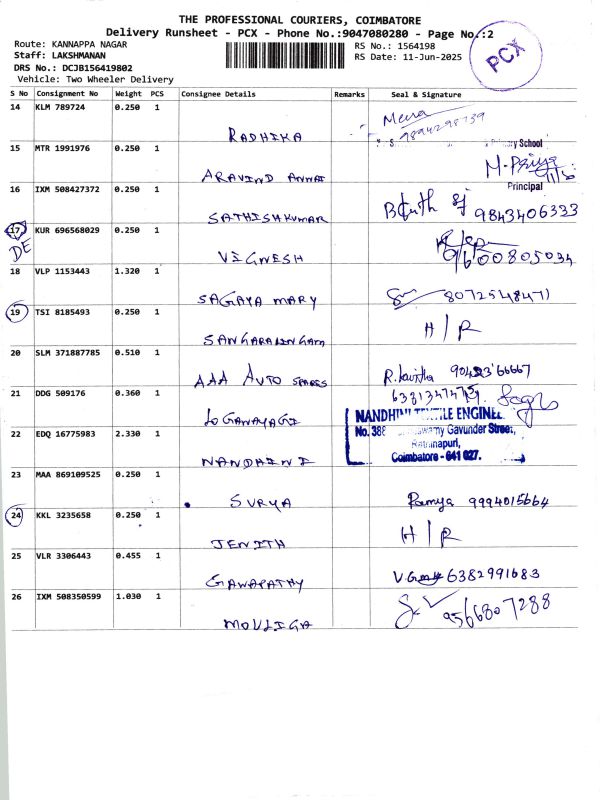 THE PROFESSIONAL COURIERS, COIMBATORE
Delivery Runsheet - PCX - Phone No.:9047080280 - Page No.:2
Route: KANNAPPA NAGAR
Staff: LAKSHMANAN
DRS No.: DCJB156419802
Vehicle: Two Wheeler Delivery
RS No.: 1564198
RS Date: 11-Jun-2025
PCX
S No Consignment No Weight PCS Consignee Details Remarks Seal & Signature
14 KLM 789724 0.250 1 RADHIKA Mena 9894298739
15 MTR 1991976 0.250 1 ARAVIND ANNAI School M. Priya Principal
16 IXM 508427372 0.250 1 SATHISHKUMAR 9843406333
17 KUR 696568029 0.250 1 VIGNESH 9600805034
DE
18 VLP 1153443 1.320 1 SAGAYA MARY 8072548471
19 TSI 8185493 0.250 1 SANGARALINGAM H/R
20 SLM 371887785 0.510 1 AAA AUTO SPARES R. Kavitha
21 DDG 509176 0.360 1 LOGANAYAGI
22 EDQ 16775983 2.330 1 NANDHINI
NANDHINI TEXTILE ENGINEE
No. 388 Gavunder Street,
Rathinapuri,
Coimbatore - 641 027.
23 MAA 869109525 0.250 1 SURYA Ramya 9994015664
24 KKL 3235658 0.250 1 JENITH H/R
25 VLR 3306443 0.455 1 GANAPATHY 6382991683
26 IXM 508350599 1.030 1 MOULIGA 9566807288